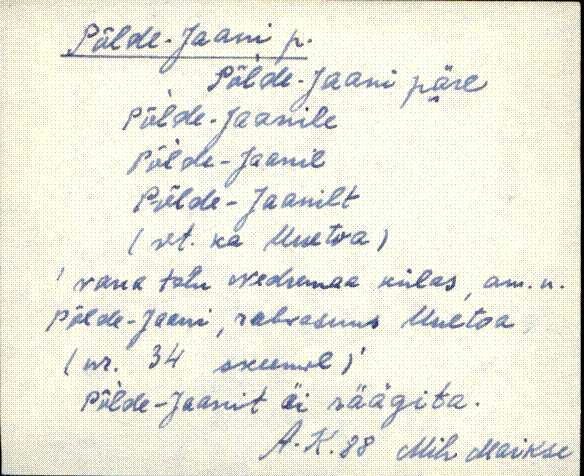 Põlde-Jaani p.
Põlde-Jaani päre
Põlde-Jaanile
Põlde-Jaanil
Põlde-Jaanilt
(vt. ka Uuetoa)
' vana talu Vedrumaa külas, am. n.
Põlde-Jaani, rahvasuus Uuetoa
(nr. 34 skeemil)'
Põlde-Jaanit äi räägita.
A. K. 88 Mih